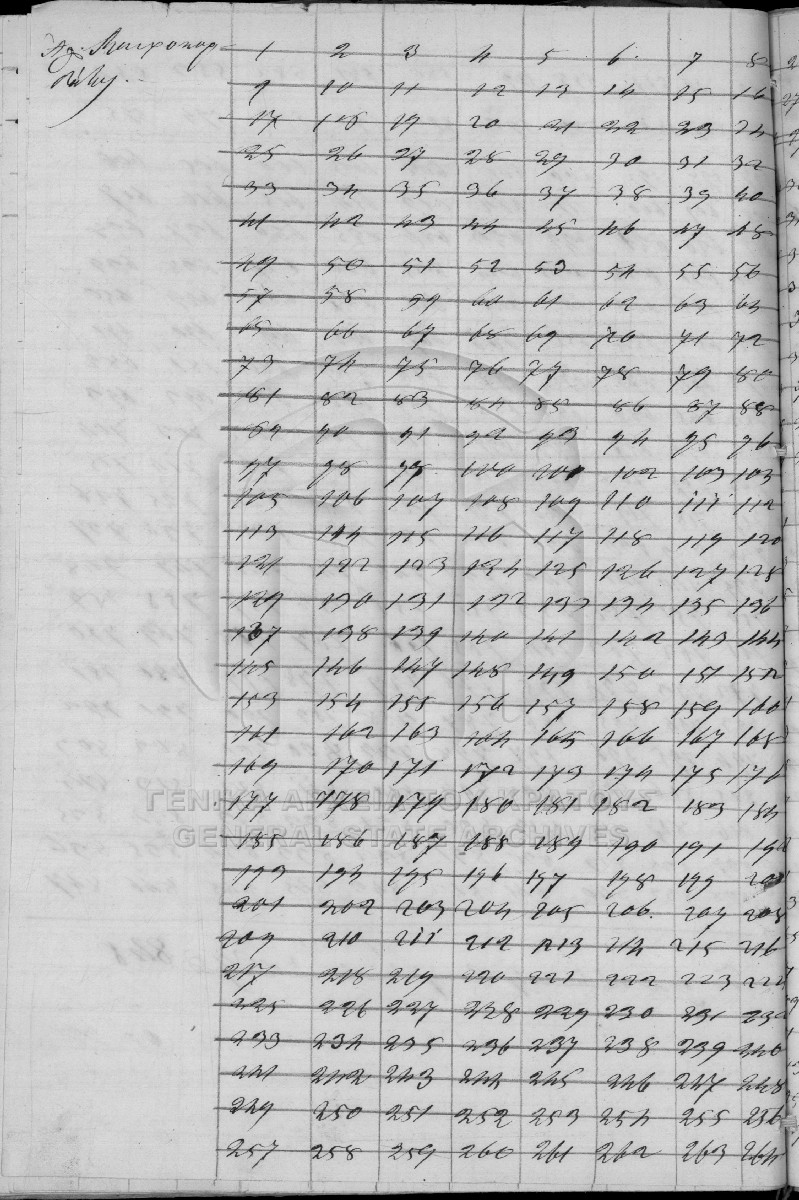 1 2 3 4 5 6 7 8
9 10 11 12 13 14 15 16
17 18 19 20 21 22 23 24
25 26 27 28 29 30 31 32
33 34 35 36 37 38 39 40
41 42 43 44 45 46 47 48
49 50 51 52 53 54 55 56
57 58 59 60 61 62 63 64
65 66 67 68 69 70 71 72
73 74 75 76 77 78 79 80
81 82 83 84 85 86 87 88
89 90 91 92 93 94 95 96
97 98 99 100 101 102 103 103
105 106 107 108 109 110 111 112
113 114 115 116 117 118 119 120
121 122 123 124 125 126 127 128
129 130 131 132 133 134 135 136
137 138 139 140 141 142 143 144
145 146 147 148 149 150 151 152
153 154 155 156 157 158 159 160
161 162 163 164 165 166 167 168
169 170 171 172 173 174 175 176
ΓΕΝΙΚΑ ΑΡΧΕΙΑ ΤΟΥ ΚΡΑΤΟΥΣ
177 178 179 180 181 182 183 184
GENERAL STATE ARCHIVES
185 186 187 188 189 190 191 192
193 194 195 196 197 198 199 200
201 202 203 204 205 206 207 208
209 210 211 212 213 214 215 216
217 218 219 220 221 222 223 224
225 226 227 228 229 230 231 232
233 234 235 236 237 238 239 240
241 242 243 244 245 246 247 248
249 250 251 252 253 254 255 256
257 258 259 260 261 262 263 264